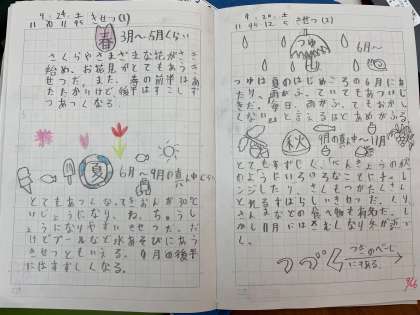 9.29.土 きせつ(1)
春 3月〜5月くらい
さくらやさまざまな花がさき
始め、お花見がとてもあう
きせつだ。また、春の前半はあ
たたかいけど後半はすこしず
つあつくなる。
夏 6月〜9月の真ん中くらい
とてもあつくなってきおんが30℃
いじょうになり、ねっちゅうし
ょうになりやすいきせつだ。だ
けどプールなど水あそびにあう
きせつともいえる。9月の後半
にはすずしくなる。
9.29.土 きせつ(2)
つゆ 6月〜
つゆは夏のはじめころの6月にあ
たり、雨がふっていてもおかし
しない」と言えるほどあめがふる。
秋 9月の真ん中〜11月
とてもすずしく、べんきょうの秋
のようにいろいろなことにチャレ
ンジしたり、さくもつがたくさん
とれるすばらしいきせつだ。くり、
さんまなどの食べ物も有名だ。し
かし11月にはさむしくなり冬が近い。
つづく
つぎのページ
にある。